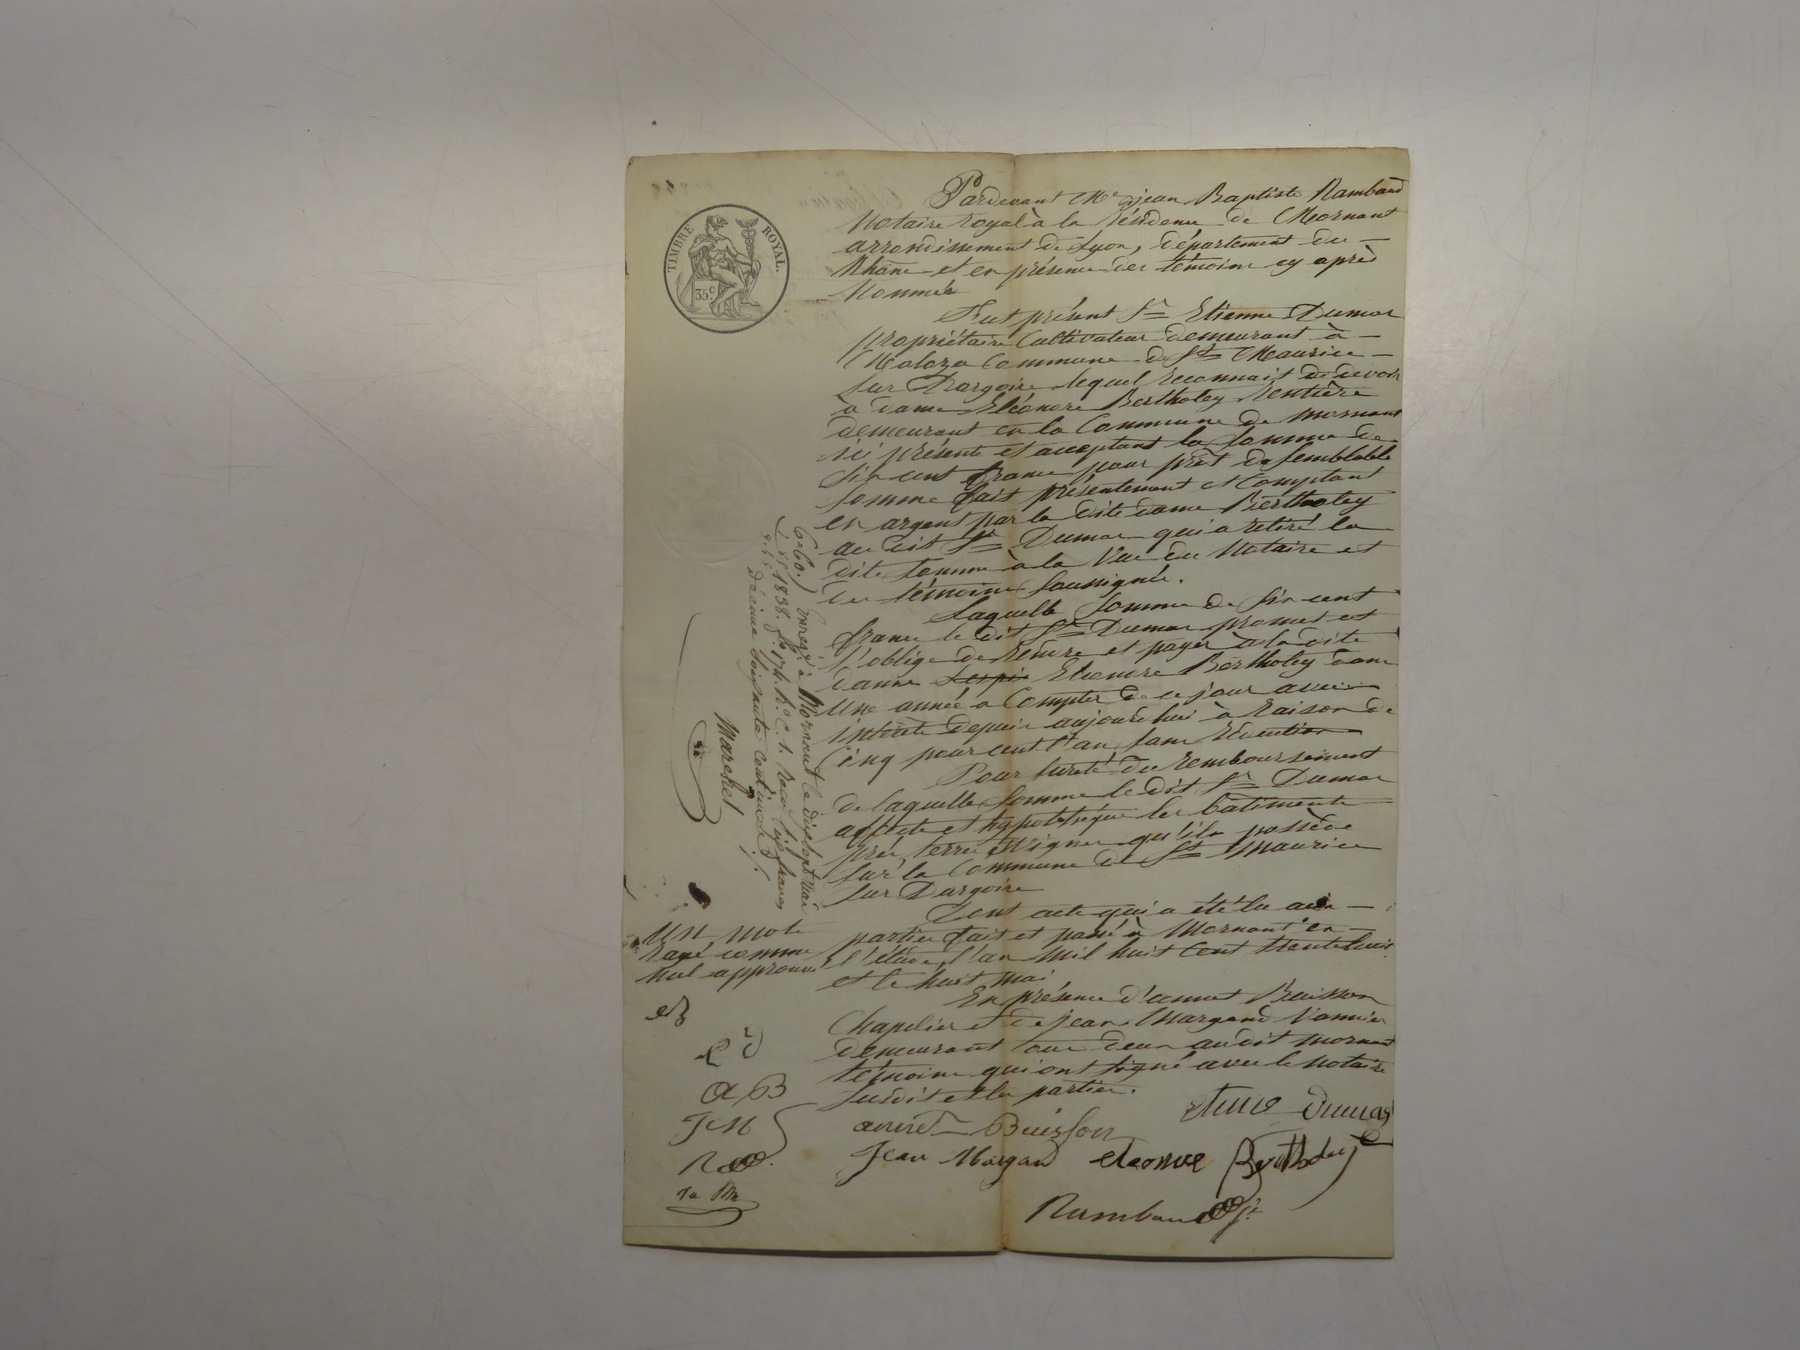 TIMBRE ROYAL.
35c.
Pardevant Me jean Baptiste Rambaud
Notaire Royal à la Résidence de Mornant
arrondissement de Lyon, département du
Rhône et en présence des témoins cy après
Nommés
Fut présent Sr Etienne Dumas
propriétaire Cultivateur demeurant à
Commune de St Maurice
sur Dargoire lequel Reconnait de devoir
à dame Eléonore Bertholey Rentière
demeurant en la Commune de mornant
ici présente et acceptant la Somme de
Six cent francs pour prêt de semblable
somme fait présentement et Comptant
en argent par la dite dame Bertholey
au dit Sr Dumas qui a retiré la
dite Somme à la Vue du Notaire et
des témoins Soussignés.
Laquelle Somme de Six cent
francs le dit Sr Dumas promet et
s'oblige de Rendre et payer à la dite
dame Eléonore Bertholey dans
Une année a Compter de ce jour avec
intérêts depuis aujourd'hui à Raison de
cinq pour cent l'an sans Rétention
Pour sureté du remboursement
de laquelle somme le dit Sr Dumas
affecte et hypothéque les batiments
prés, terres et Vignes qu'il possède
sur la Commune de St Maurice
sur Dargoire
Dont acte qui a été lu aux
parties fait et passé à Mornant en
l'étude, l'an Mil huit Cent trente huit
et le huit mai
En présence d'annet Buisson
Chapelier et de jean Margand Vannier
demeurant tous deux au dit mornant
témoins qui ont signé avec le Notaire
susdit et les parties.
etiene dumas
annet Buisson
Jean Margand eleonore Bertholey
Rambaud
Enregé à Mornant le dix sept mai
1838. fo 174. Ro C. 1. Reçu six francs
décime soixante centimes
Marchel
Un mot
Rayé comme
Nul approuvé
eB
E D
A B
J M
R